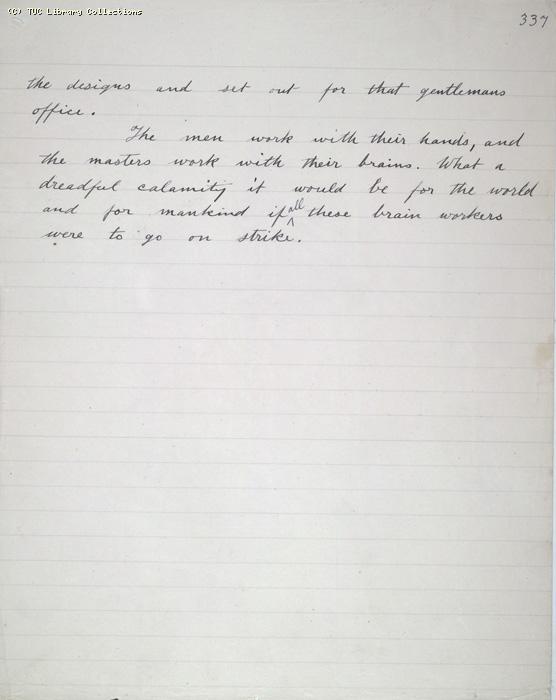 (C) TUC Library Collections
337
the designs and set out for that gentlemans
office.
The men work with their hands, and
the masters work with their brains. What a
dreadful calamity it would be for the world
and for mankind if all these brain workers
were to go on strike.